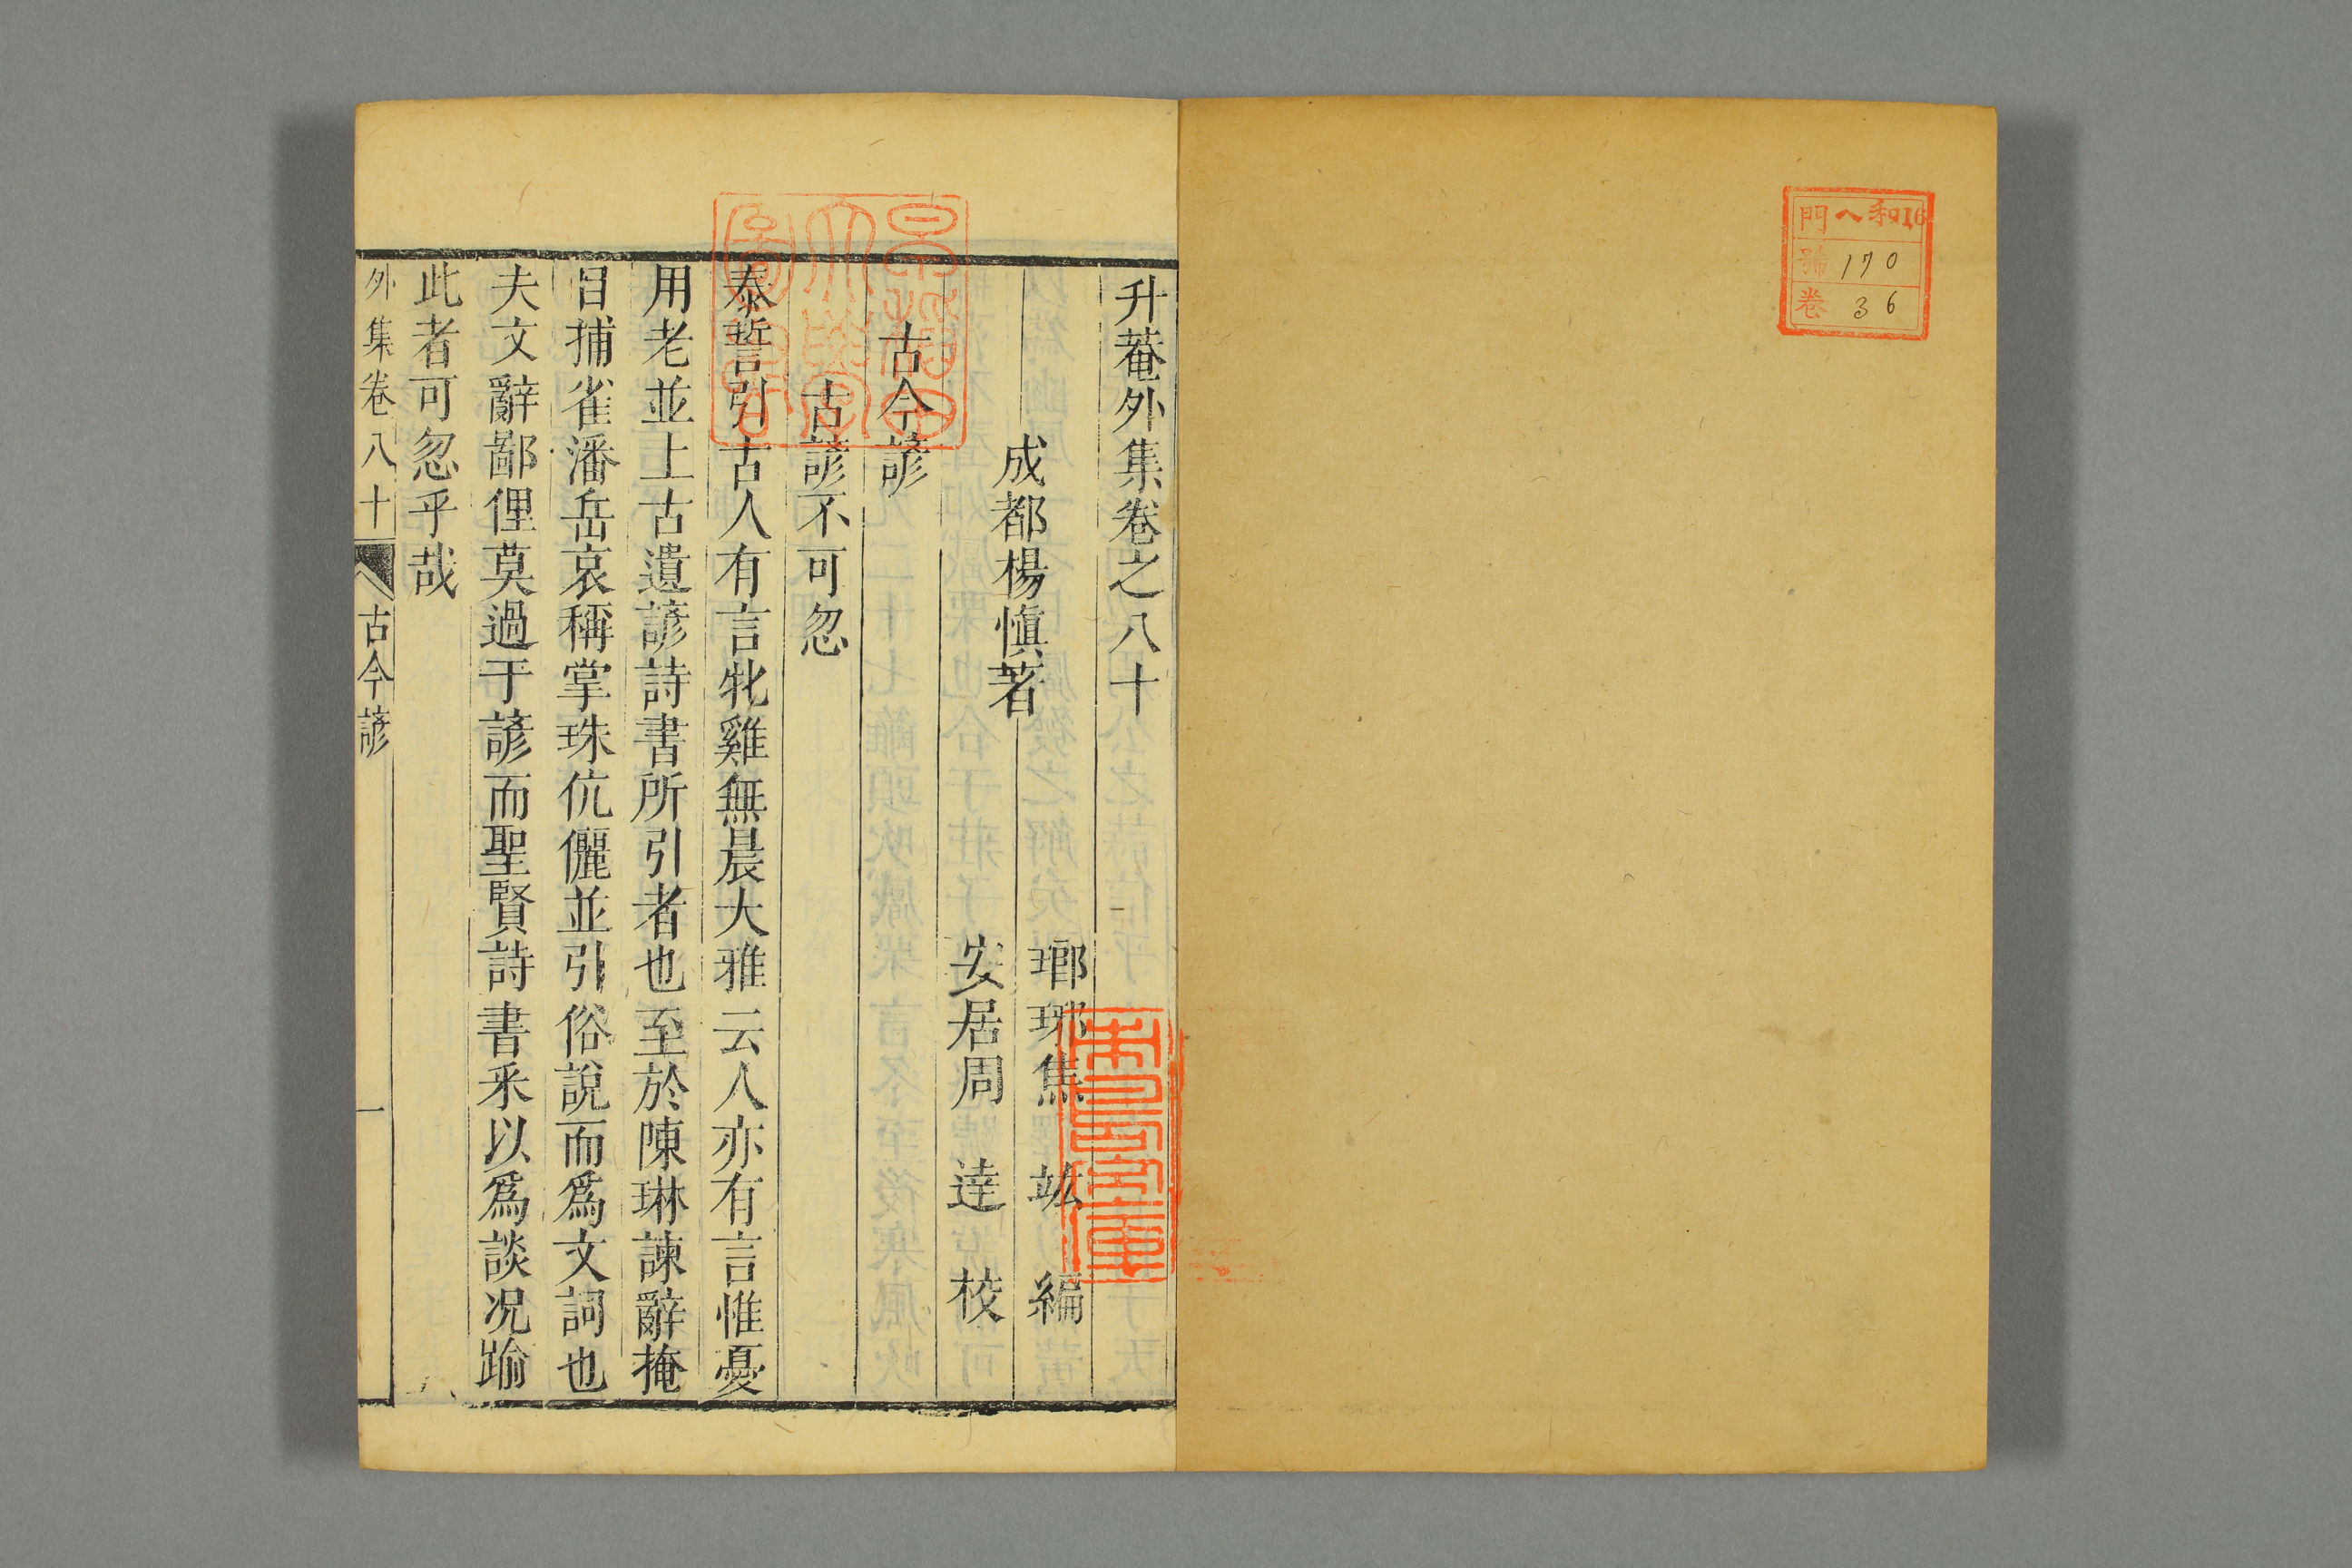 門 ヘ和16
號 170
卷 36
升菴外集卷之八十
成都楊慎著
瑯琊焦 竑 編
安居周 達 校
古今諺
古諺不可忽
泰誓引古人有言牝雞無晨大雅云人亦有言惟憂
用老並上古遺諺詩書所引者也至於陳琳諫辭掩
目捕雀潘岳哀稱掌珠伉儷並引俗說而爲文詞也
夫文辭鄙俚莫過于諺而聖賢詩書采以爲談况踰
此者可忽乎哉
外集卷八十 古今諺 一